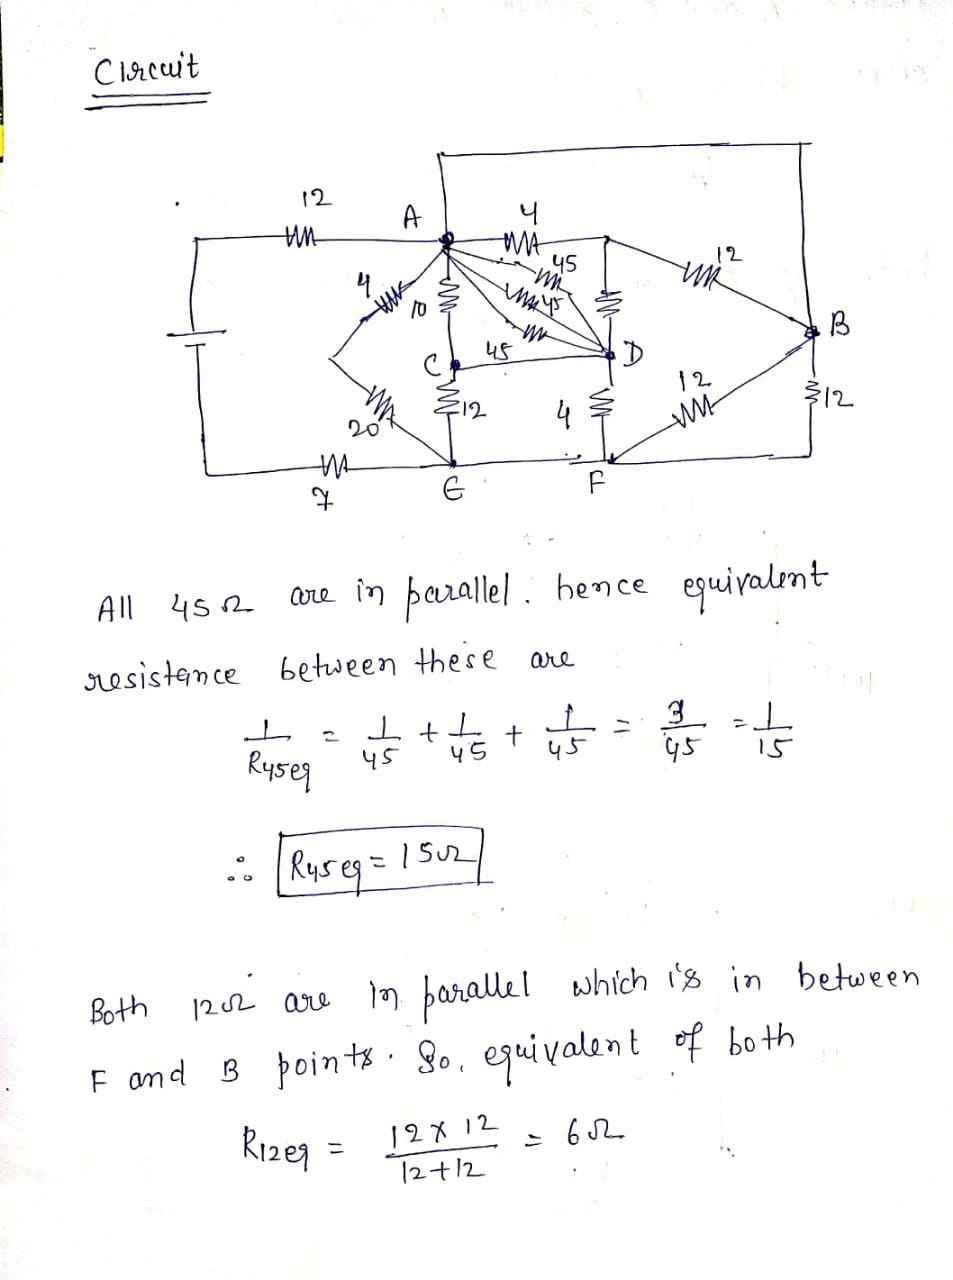 Circuit
12
A
4
12
45
4
10
45
B
C
45
D
12
12
12
20
4
7
E
F
All 45Ω are in parallel. hence equivalent
resistance between these are
1/R45eq = 1/45 + 1/45 + 1/45 = 3/45 = 1/15
∴ R45eq = 15Ω
Both 12Ω are in parallel which is in between
F and B points. So, equivalent of both
R12eq = 12×12/12+12 = 6Ω